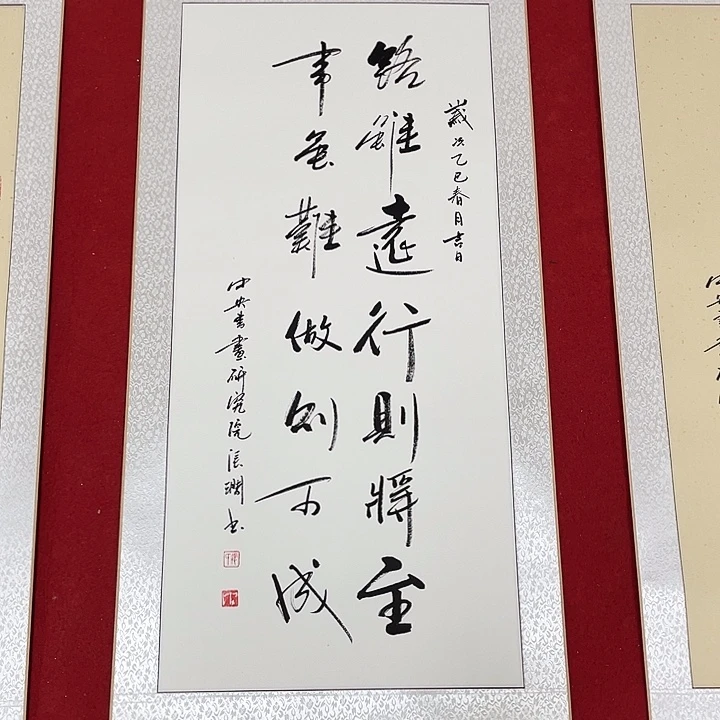 歲次乙巳春月吉日
路雖遠行則將至
事虽難做则可成
中央書畫研究院張淵书